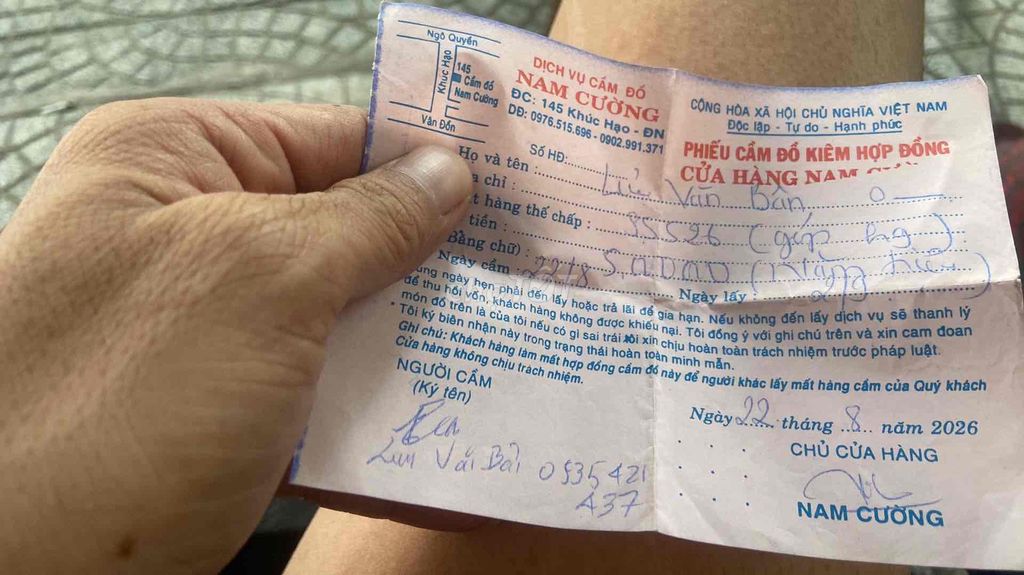 Ngô Quyền
Khúc Hạo
145
Cầm đồ
Nam Cường
Vân Đồn
DỊCH VỤ CẦM ĐỒ
NAM CƯỜNG
ĐC: 145 Khúc Hạo - ĐN
DĐ: 0976.515.696 - 0902.991.371
Số HĐ:
CỘNG HÒA XÃ HỘI CHỦ NGHĨA VIỆT NAM
Độc lập - Tự do - Hạnh phúc
PHIẾU CẦM ĐỒ KIÊM HỢP ĐỒNG
CỬA HÀNG NAM
Họ và tên : Văn Bản
chỉ :
hàng thế chấp : SS S26
tiền :
Bằng chữ) :
Ngày cầm : 22/8 Ngày lấy :
ngày hẹn phải đến lấy hoặc trả lãi để gia hạn. Nếu không đến lấy dịch vụ sẽ thanh lý
để thu hồi vốn, khách hàng không được khiếu nại. Tôi đồng ý với ghi chú trên và xin cam đoan
món đồ trên là của tôi nếu có gì sai trái tôi xin chịu hoàn toàn trách nhiệm trước pháp luật.
Tôi ký biên nhận này trong trạng thái hoàn toàn minh mẫn.
Ghi chú: Khách hàng làm mất hợp đồng cầm đồ này để người khác lấy mất hàng cầm của Quý khách
Cửa hàng không chịu trách nhiệm.
NGƯỜI CẦM
(Ký tên)
0935421
437
Ngày 22 tháng 8 năm 2026
CHỦ CỬA HÀNG
NAM CƯỜNG